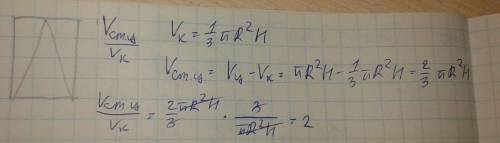 Vст.ц/Vк Vк = 1/3 πR²H
Vст.ц = Vц - Vк = πR²H - 1/3 πR²H = 2/3 πR²H
Vст.ц/Vк = 2πR²H/3 · 3/πR²H = 2